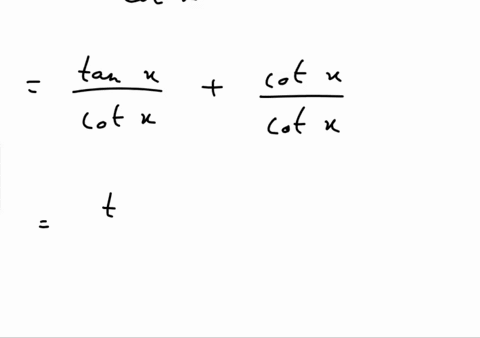 cot x
= tan x / cot x + cot x / cot x
= t